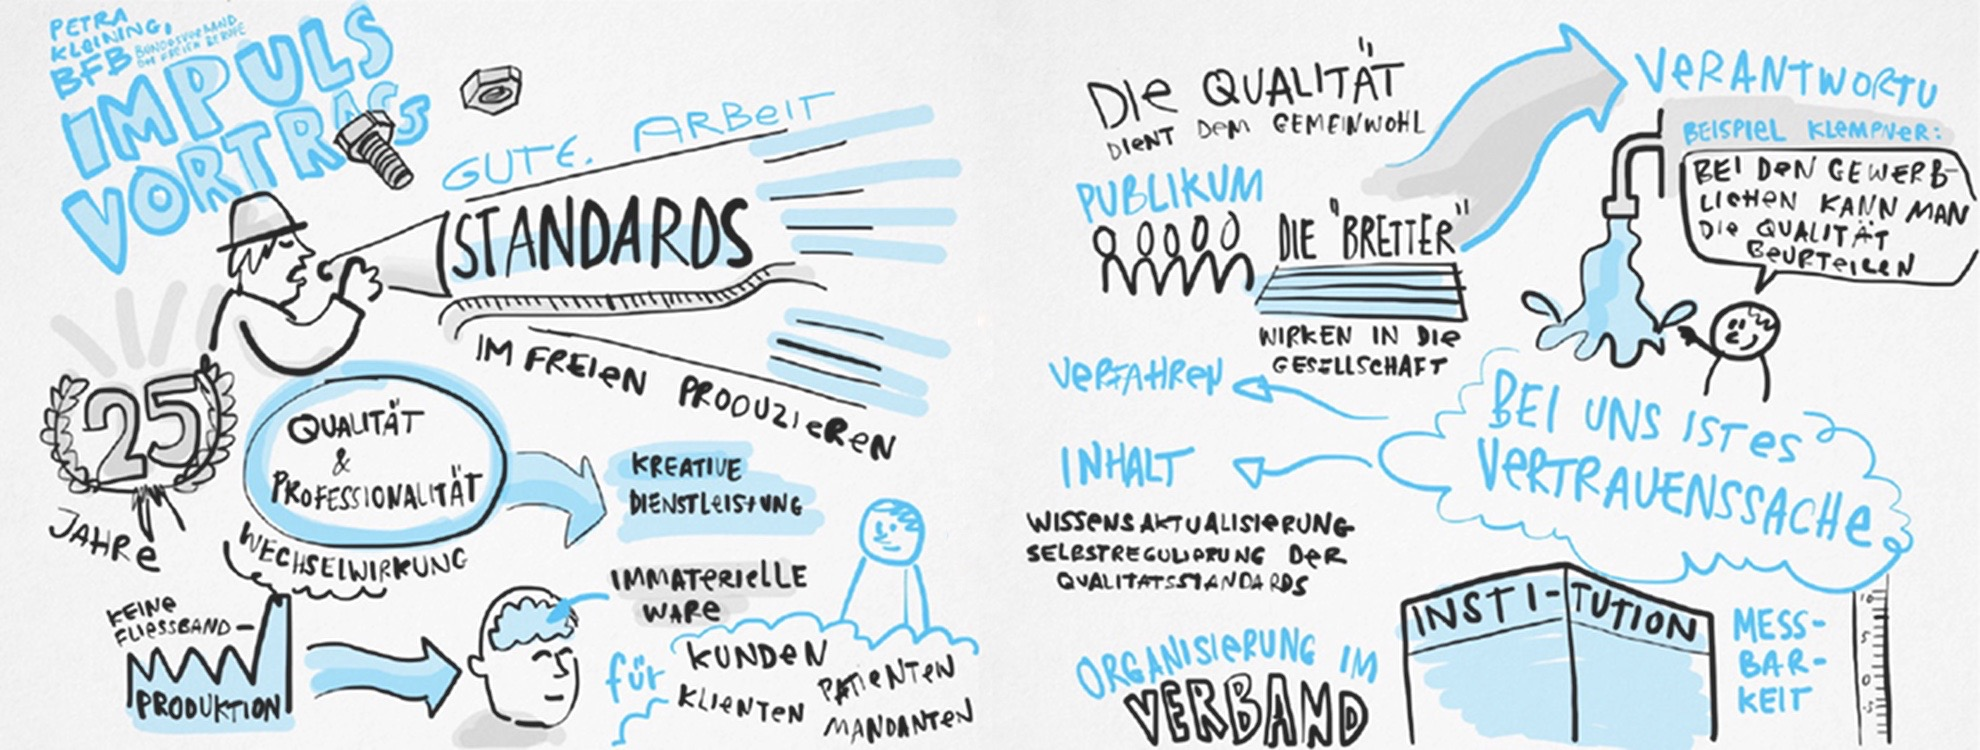 PETRA
KLEINING,
BFB BUNDESVERBAND
DER FREIEN BERUFE
IMPULS
VORTRAGS
GUTE. ARBEIT
STANDARDS
IM FREIEN PRODUZIEREN
25
JAHRE
QUALITÄT
&
PROFESSIONALITÄT
WECHSELWIRKUNG
KREATIVE
DIENSTLEISTUNG
IMMATERIELLE
WARE
KEINE
FLIESSBAND-
PRODUKTION
für
KUNDEN
PATIENTEN
KLIENTEN
MANDANTEN
DIE QUALITÄT"
DIENT DEM GEMEINWOHL
PUBLIKUM
DIE "BRETTER"
WIRKEN IN DIE
GESELLSCHAFT
VERANTWORTU
BEISPIEL KLEMPNER:
BEI DEN GEWERB-
LICHEN KANN MAN
DIE QUALITÄT
BEURTEILEN
VERFAHREN
INHALT
BEI UNS IST ES
VERTRAUENSSACHE
WISSENSAKTUALISIERUNG
SELBSTREGULIERUNG DER
QUALITÄTSSTANDARDS
ORGANISIERUNG IM
VERBAND
INSTI-TUTION
MESS-
BAR-
KEIT
10
5
0
-5